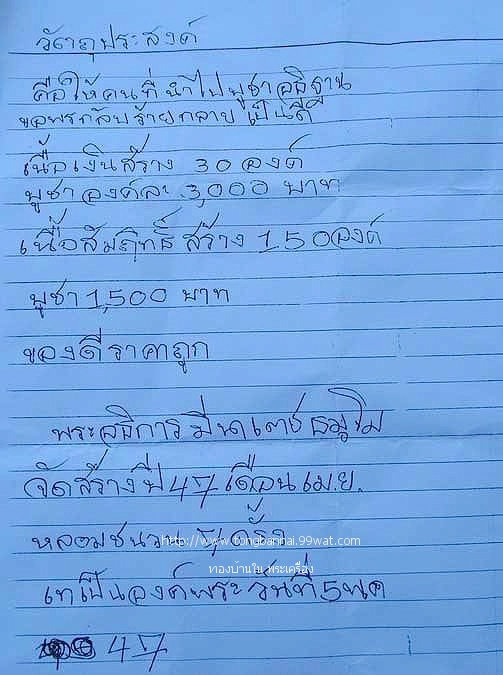 วัตถุประสงค์
คือให้คนที่นำไปบูชาอธิฐาน
ขอพรกลับร้ายกลายเป็นดี
เนื้อเงินสร้าง 30 องค์
บูชาองค์ละ 3,000 บาท
เนื้อสัมฤทธิ์ สร้าง 150องค์
บูชา 1,500 บาท
ของดี ราคาถูก
พระอธิการ
จัดสร้างปี 47 เดือน เม.ย.
หลอมชนวน
http://www.tongbannai.99wat.com
ทองบ้านใน พระเครื่อง
เทเป็นองค์พระ วันที่ 5 พค
47